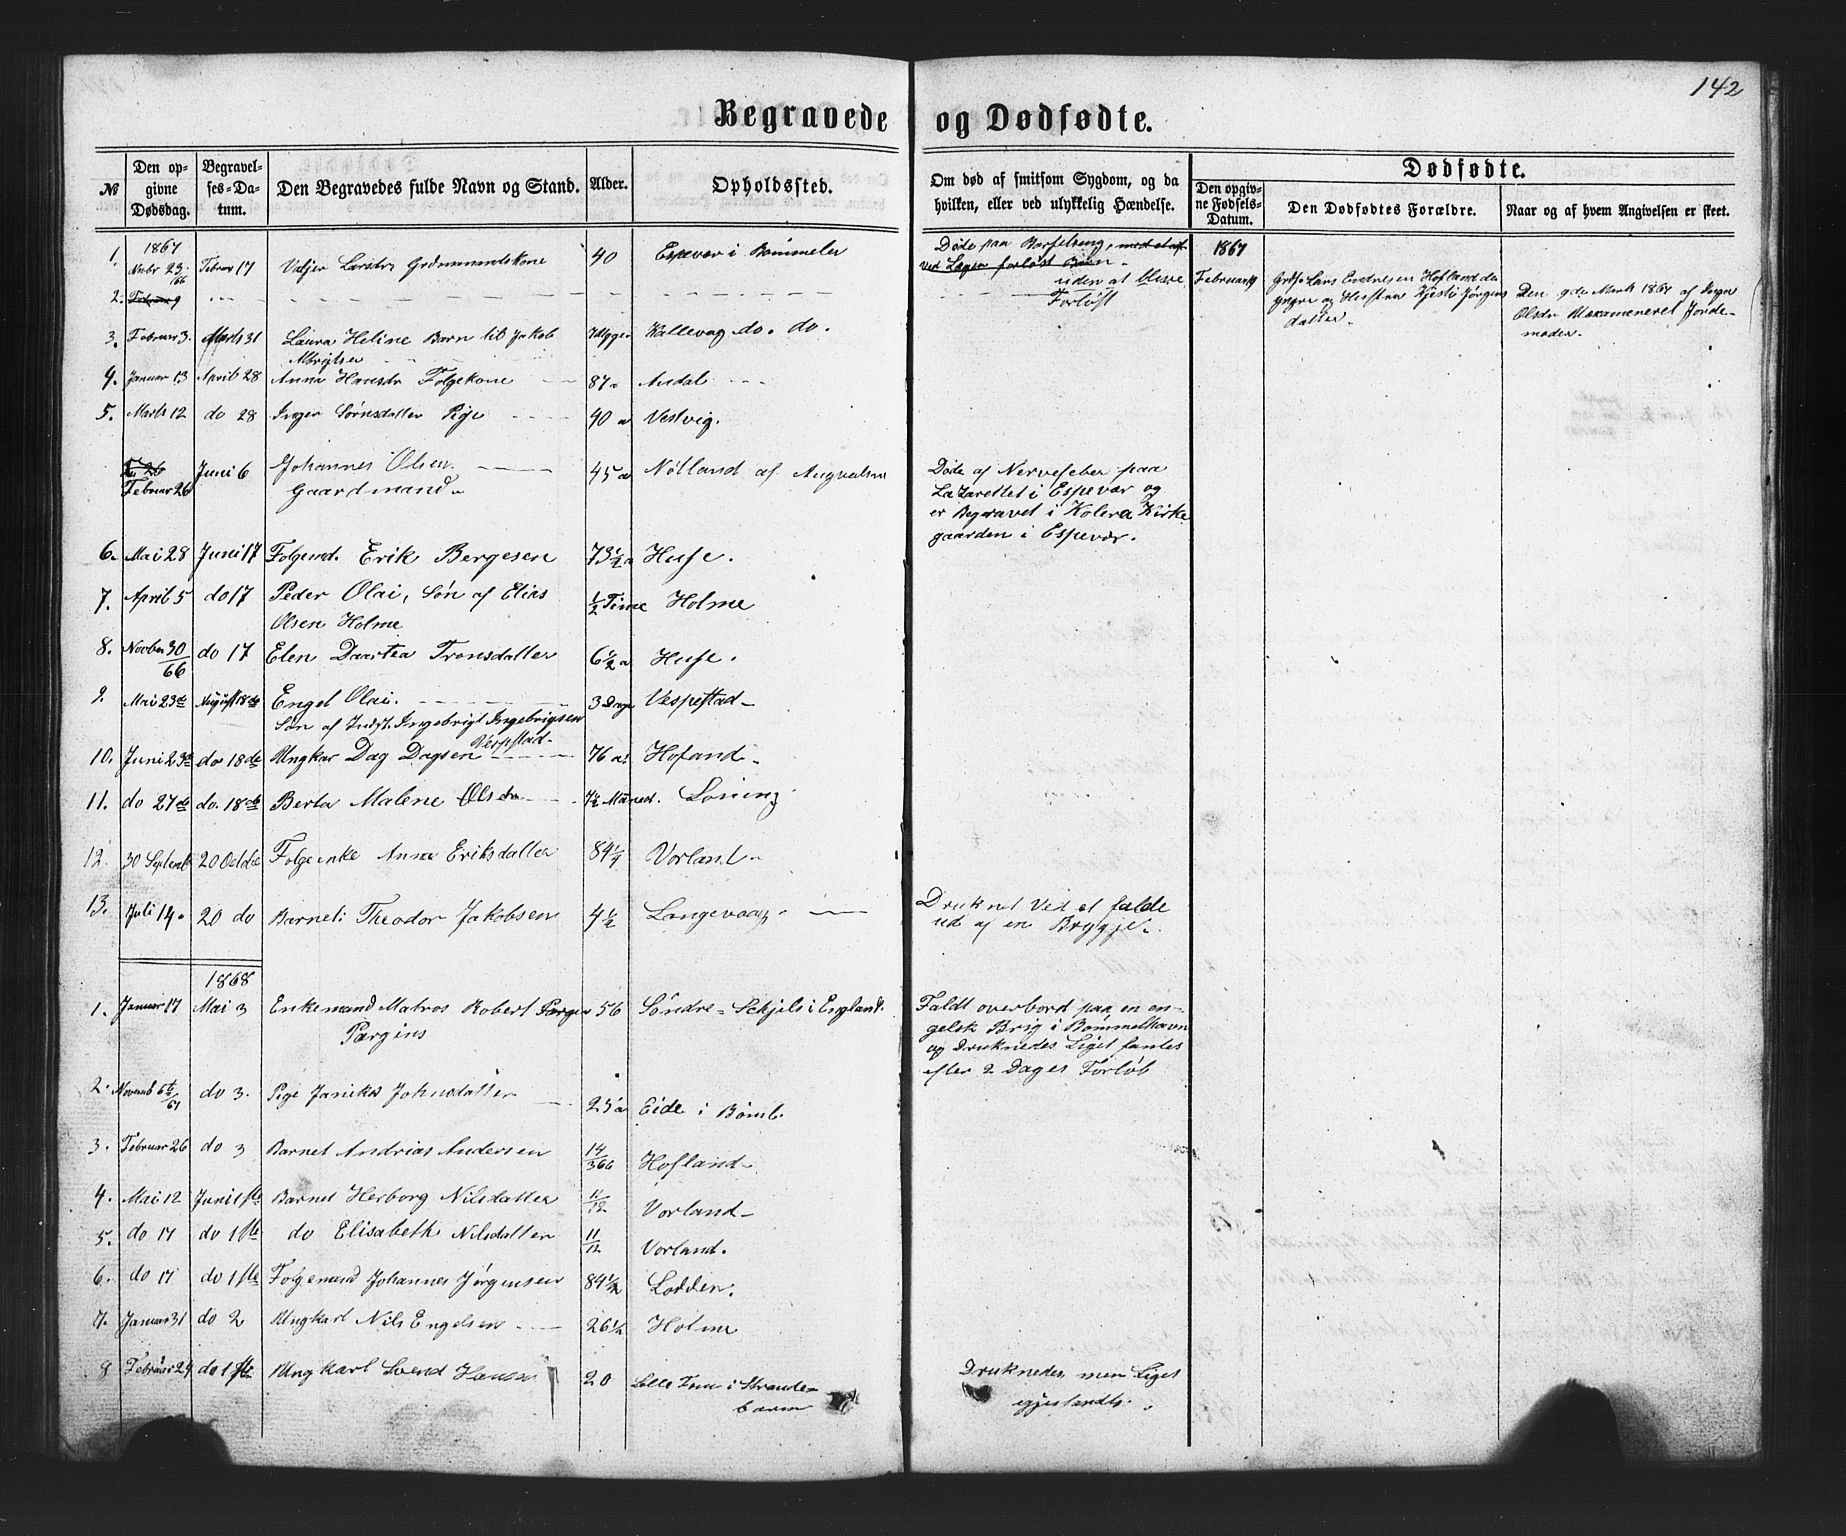 142
Begravede og Dødfødte.
№
Den opgivne Dødsdag.
Begravelses-Datum.
Den Begravedes fulde Navn og Stand.
Alder.
Opholdssted.
Om død af smitsom Sygdom, og da hvilken, eller ved ulykkelig Hændelse.
Dødfødte.
Den opgivne Fødsels-Datum.
Den Dødfødtes Forældre.
Naar og af hvem Angivelsen er skeet.
1867 1867
1. 23 66 Februar 17 Larsdr Grdmandskone 40 Espevær i Bømmelen Døde paa Barselseng, med et af
Ved Lægen forløst Barn
uden at blive
Forløst
2. Februar 9 Februar 9 Lars Endresen Hofland da
yngre og Hustru Jørgens
datter.
Den 9de Marts 1867 af Inger
Olsdr Uexamineret Jorde-
moder.
3. Februar 3. Marts 31 Laura Heline Barn til Jakob Kallevag do. do.
4. Januar 13 April 28 Anna Hansdr Folgekone 87 a Andal
5. Marts 12 do 28 Inger Sørnsdatter Pige 40 a Vestvig.
Februar 26 Juni 6 Johannes Olsen 45 a Nøtland af
Gaardmand.
Døde af Nervefeber paa
Lazarettet i Espevær og
er Begravet i Kolera Kirke
gaarden i Espevær.
6. Mai 28 Juni 17 Folgemd. Erik Bergesen 73 1/2 a Huse.
7. April 5 do 17 Peder Olai, Søn af Elias 1/2 Time Holme
Olsen Holme
8. Novber 30/66 do 17 Elen Daartea Tronsdatter 6 1/2 a Huse.
9. Mai 23de August 18de Engel Olai. 3 Dage Vespestad
Søn af Indst. Ingebrigt Ingebrigsen
Vespestad
10. Juni 23de do 18de Ungkar Dag Dagsen 76 a. Hofland
11. do 27de do. 18de Berta Malene Olsdr 7 1/2 Maaned. Løning
12. 30 Septembr 20 Octobe Folgeenke Anna Eriksdatter 84 1/4 Vorland
13. Juli 14. 20 do Barnet: Theodor Jakobsen 4 1/2 Langevaag. Druknet Ved et falde
ud af en Brygje.
1868
1. Januar 17 Mai 3 Enkemand Matros Robert 56 Søndre-Schjels i England.
Pargins
Faldt overbord paa en en-
gelsk Brig i Bømmelhavn
og Druknedes Liget fantes
efter 2 Dages Forløb
2. Novemb 6te/67 do 3. Pige Janikka Johnsdatter 25 a Eide i Bøml.
3. Februar 26 do 3 Barnet Andrias Andersen 14/366 Hofland
4. Mai 12 Juni 1ste Barnet Herborg Nilsdatter 11/12 Vorland
5. do 17 do 1ste do Elisabeth Nilsdatter 11/12 Vorland.
6. do 17 do 1ste Folgemand Johannes Jørgensen 84 1/2 Lodden.
7. Januar 31 do 2 Ungkarl Nils Engelsen 26 1/2 Holme
8 Februar 24 do 1ste Ungkarl Svend 20 i Strande-
barm
Druknedes men Liget